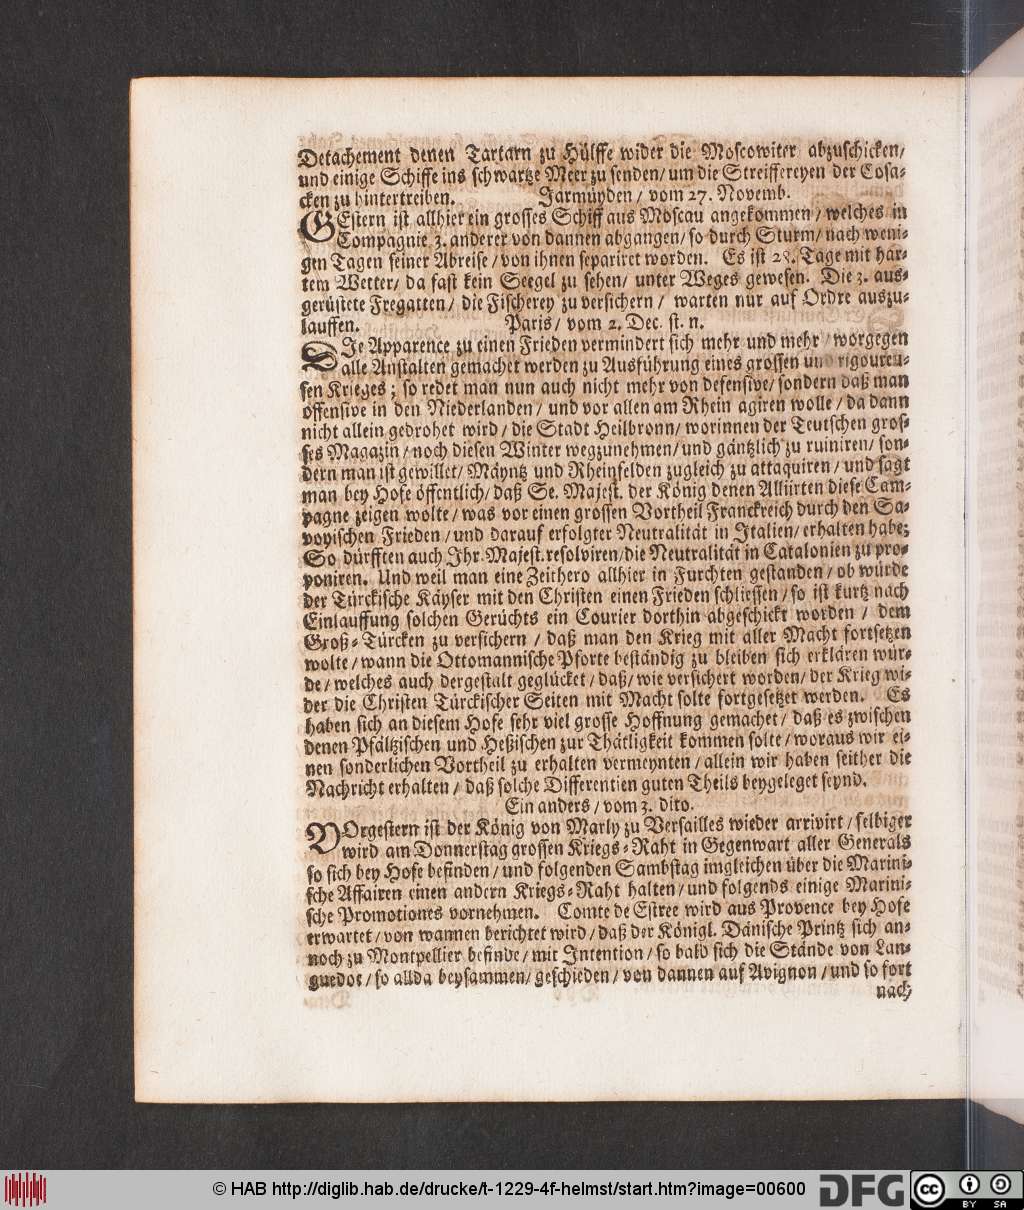 Detachement denen Tartarn zu Hülffe wider die Moscowiter abzuschicken/
und einige Schiffe ins schwartze Meer zu senden/ um die Streiffereyen der Cosa-
cken zu hintertreiben. Jarmuyden / vom 27. Novemb.
GEstern ist allhier ein grosses Schiff aus Moscau angekommen / welches in
Compagnie 3. anderer von dannen abgangen/ so durch Sturm/ nach weni-
gen Tagen seiner Abreise / von ihnen separiret worden. Es ist 28. Tage mit har-
tem Wetter/ da fast kein Seegel zu sehen/ unter Weges gewesen. Die 3. aus-
gerüstete Fregatten/ die Fischerey zu versichern / warten nur auf Ordre auszu-
lauffen. Paris/ vom 2. Dec. st. n.
DIe Apparence zu einen Frieden vermindert sich mehr und mehr / worgegen
alle Anstalten gemachet werden zu Ausführung eines grossen und rigoureu-
sen Krieges; so redet man nun auch nicht mehr von defensive/ sondern daß man
offensive in den Niederlanden / und vor allen am Rhein agiren wolle / da dann
nicht allein gedrohet wird / die Stadt Heilbronn/ worinnen der Teutschen gros-
ses Magazin / noch diesen Winter wegzunehmen/ und gäntzlich zu ruiniren/ son-
dern man ist gewillet/ Mäyntz und Rheinfelden zugleich zu attaquiren / und sagt
man bey Hofe öffentlich/ daß Se. Majest. der König denen Alliirten diese Cam-
pagne zeigen wolte / was vor einen grossen Vortheil Franckreich durch den Sa-
voyischen Frieden / und darauf erfolgter Neutralität in Italien/ erhalten habe;
So dürfften auch Ihr. Majest. resolviren/ die Neutralität in Catalonien zu pro-
poniren. Und weil man eine Zeithero allhier in Furchten gestanden / ob würde
der Türckische Käyser mit den Christen einen Frieden schliessen / so ist kurtz nach
Einlauffung solchen Gerüchts ein Courier dorthin abgeschickt worden / dem
Groß-Türcken zu versichern / daß man den Krieg mit aller Macht fortsetzen
wolte / wann die Ottomannische Pforte beständig zu bleiben sich erklären wür-
de / welches auch dergestalt geglücket / daß/ wie versichert worden/ der Krieg wi-
der die Christen Türckischer Seiten mit Macht solte fortgesetzet werden. Es
haben sich an diesem Hofe sehr viel grosse Hoffnung gemachet / daß es zwischen
denen Pfältzischen und Heßischen zur Thätligkeit kommen solte / woraus wir ei-
nen sonderlichen Vortheil zu erhalten vermeynten / allein wir haben seither die
Nachricht erhalten / daß solche Differentien guten Theils beygeleget seynd.
Ein anders / vom 3. dito.
VOrgestern ist der König von Marly zu Versailles wieder arrivirt / selbiger
wird am Donnerstag grossen Kriegs-Raht in Gegenwart aller Generals
so sich bey Hofe befinden / und folgenden Sambstag imgleichen über die Marini-
sche Affairen einen andern Kriegs-Raht halten / und folgends einige Marini-
sche Promotiones vornehmen. Comte de Estree wird aus Provence bey Hofe
erwartet / von wannen berichtet wird / daß der Königl. Dänische Printz sich an-
noch zu Montpellier befinde / mit Intention / so bald sich die Stände von Lan-
guedoc / so allda beysammen/ geschieden / von dannen auf Avignon / und so fort
nach
© HAB http://diglib.hab.de/drucke/t-1229-4f-helmst/start.htm?image=00600
DFG
cc BY SA